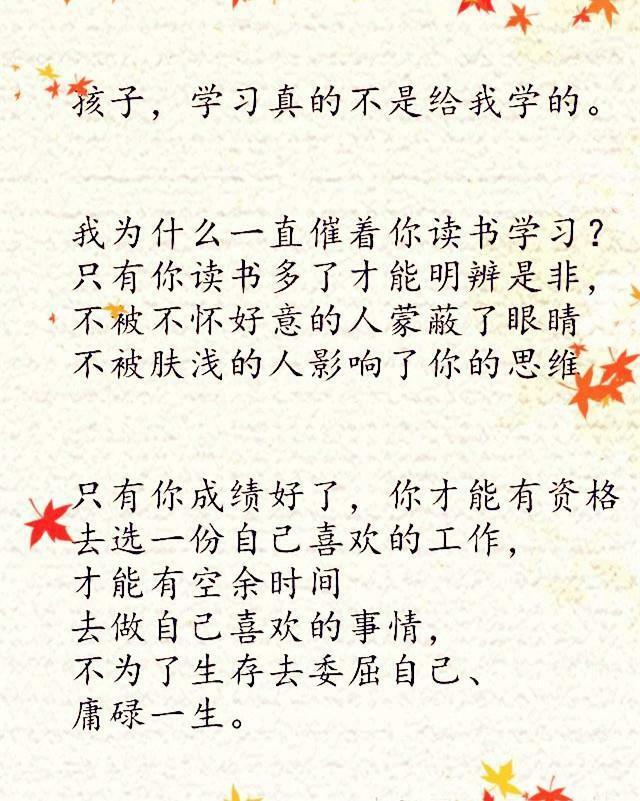 孩子，学习真的不是给我学的。
我为什么一直催着你读书学习？
只有你读书多了才能明辨是非，
不被不怀好意的人蒙蔽了眼睛
不被肤浅的人影响了你的思维
只有你成绩好了，你才能有资格
去选一份自己喜欢的工作，
才能有空余时间
去做自己喜欢的事情，
不为了生存去委屈自己、
庸碌一生。